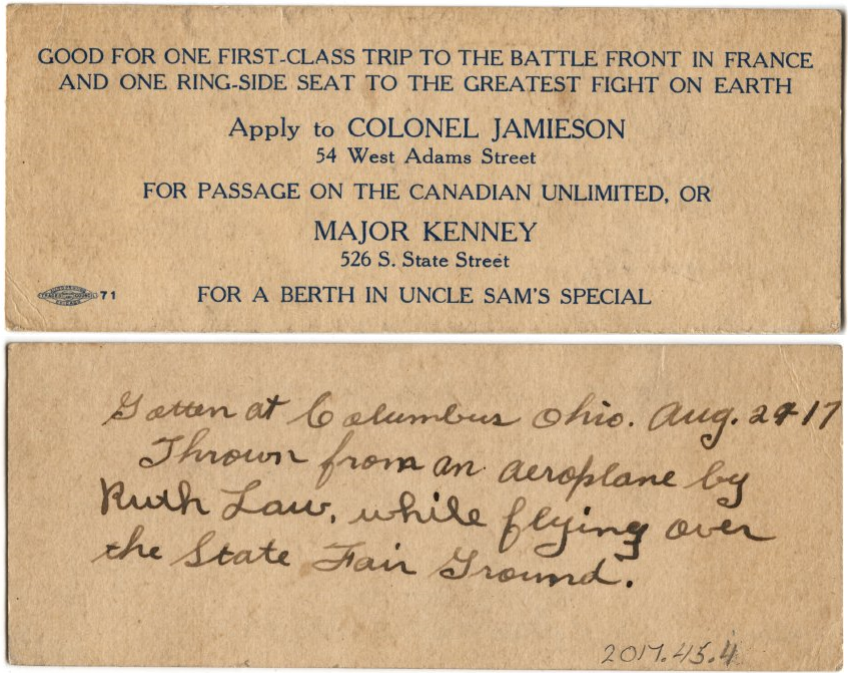 GOOD FOR ONE FIRST-CLASS TRIP TO THE BATTLE FRONT IN FRANCE
AND ONE RING-SIDE SEAT TO THE GREATEST FIGHT ON EARTH
Apply to COLONEL JAMIESON
54 West Adams Street
FOR PASSAGE ON THE CANADIAN UNLIMITED, OR
MAJOR KENNEY
526 S. State Street
71
FOR A BERTH IN UNCLE SAM'S SPECIAL
Gotten at Columbus Ohio. Aug. 29-17
Thrown from an aeroplane by
Ruth Law, while flying over
the State Fair Ground.
2017.45.4